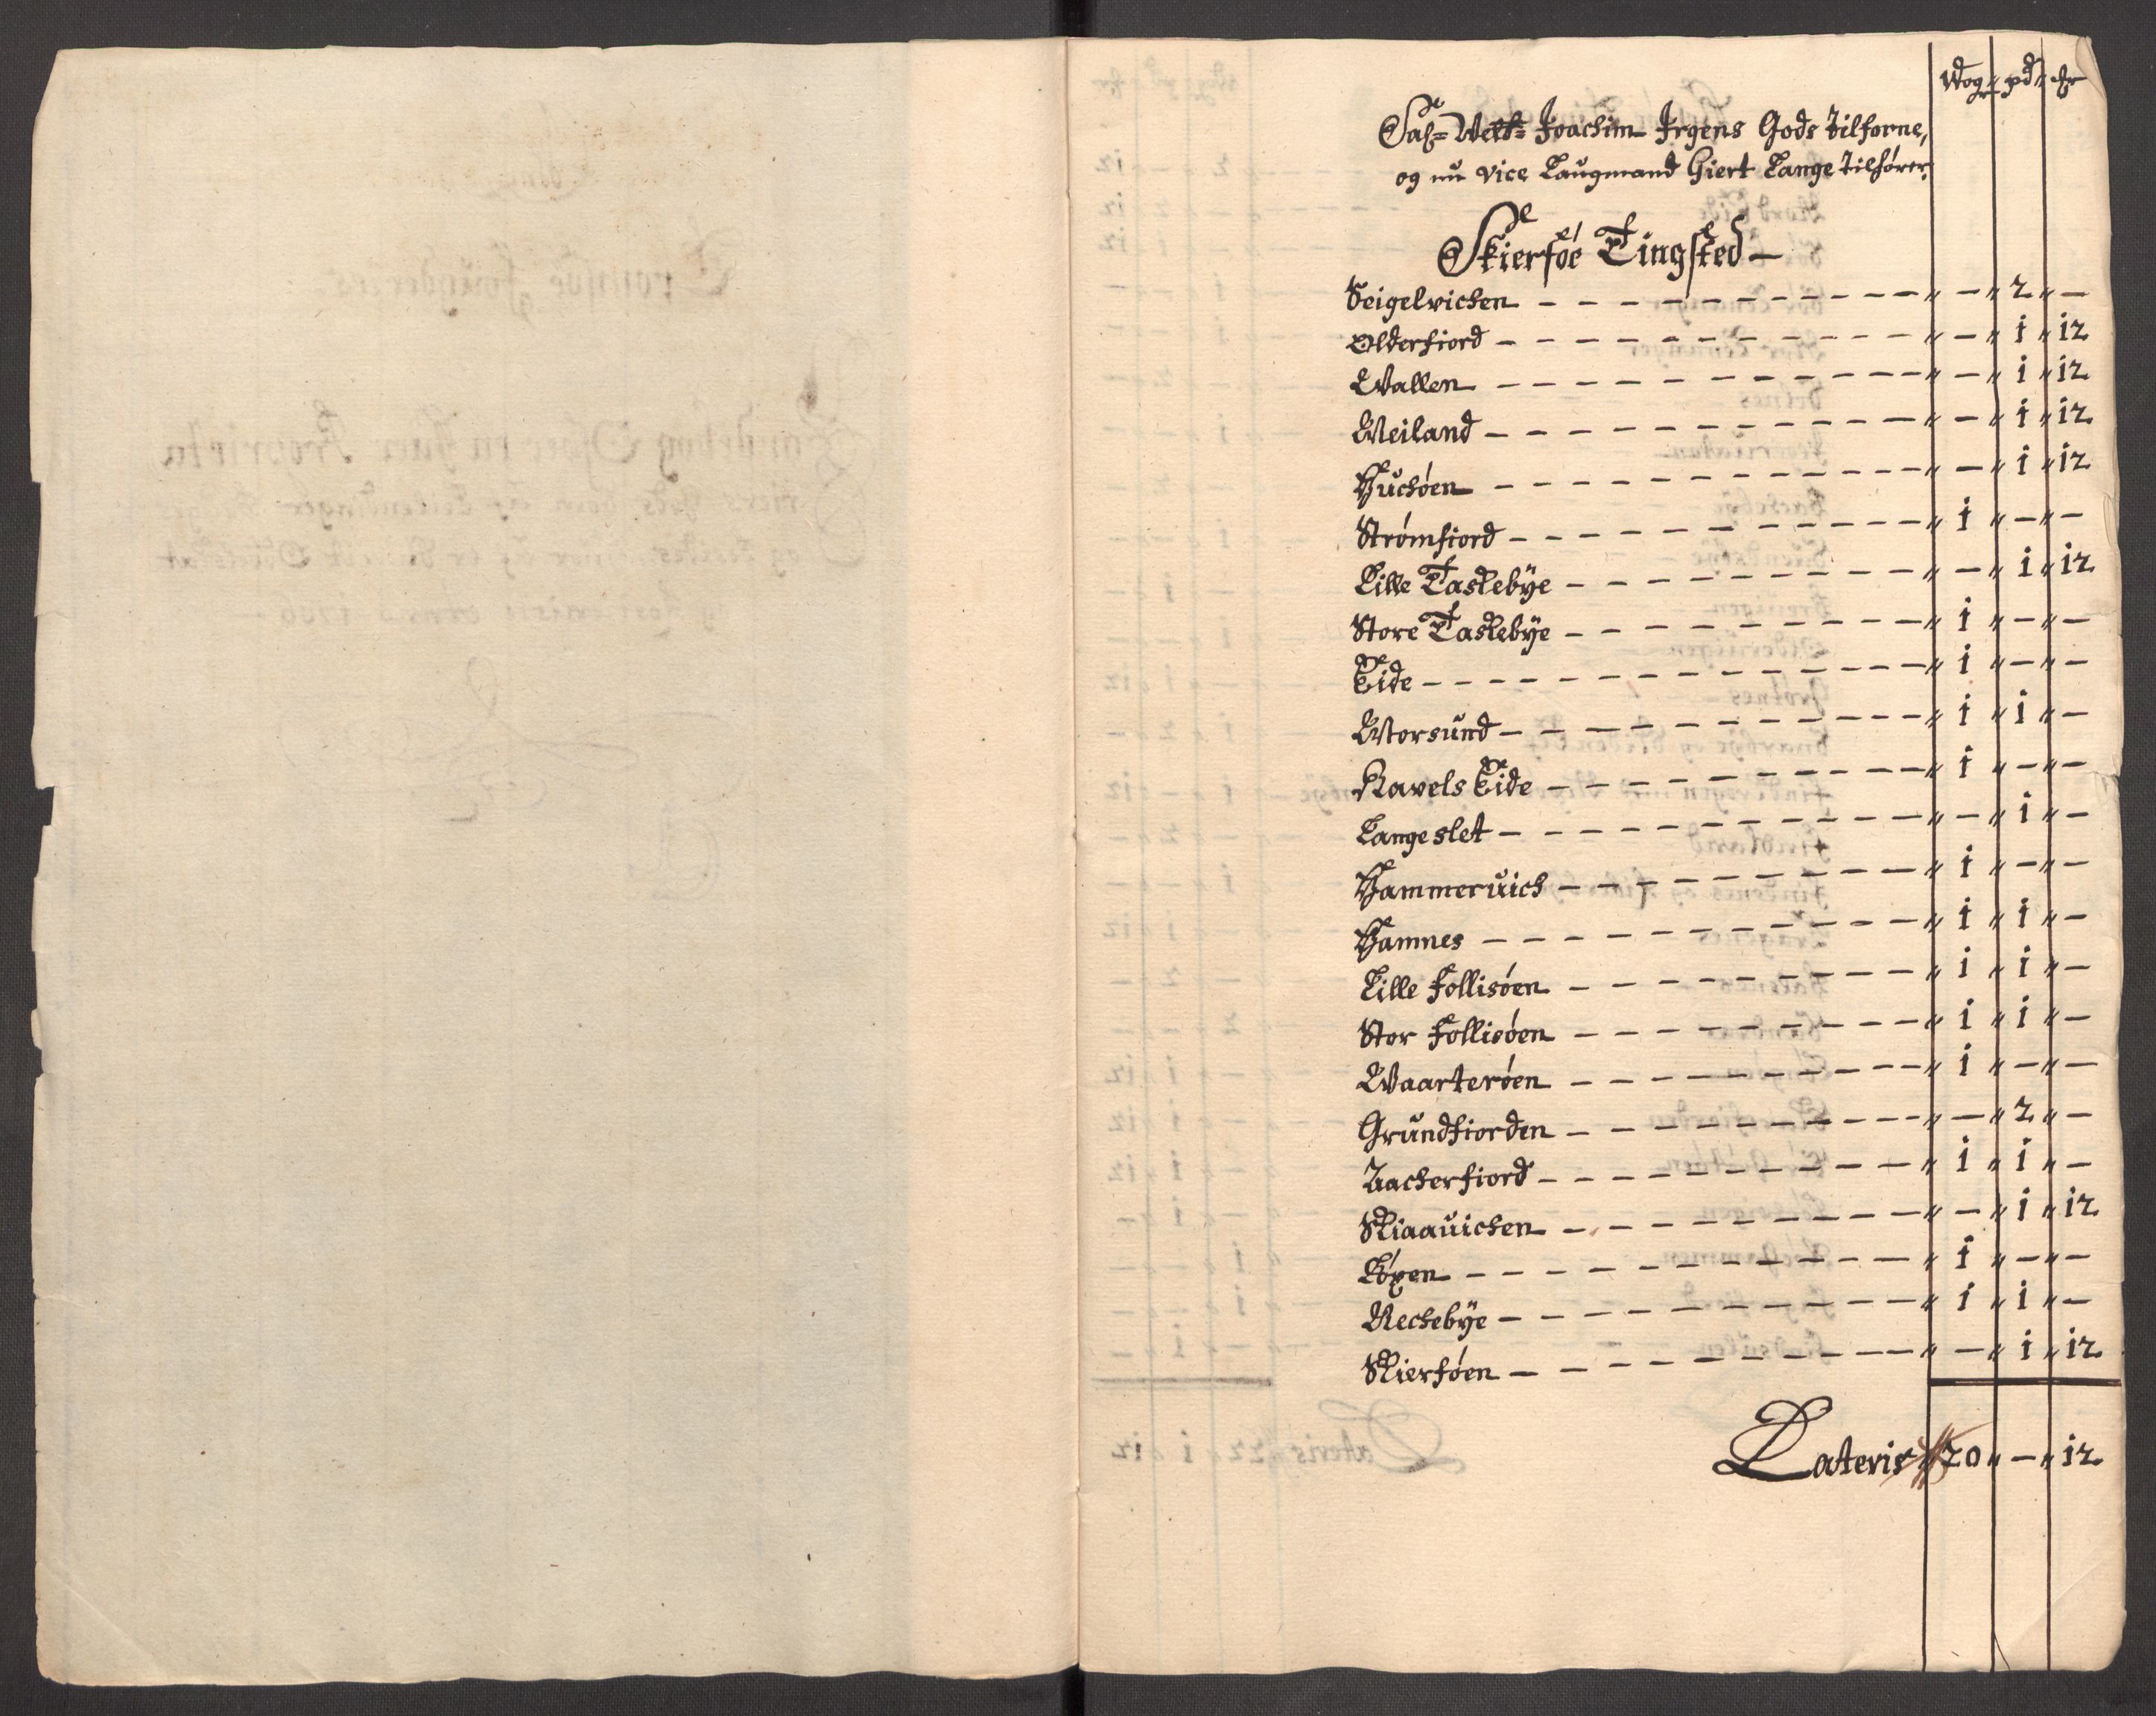 Wog " pd " [mk]
Sal= Velb= Joachim Irgens Gods tilforne,
og nu vice Laugmand Giert Lange tilhører.
Skierføe Tingsted —
Seigelvichen — " — " 2 " —
Olderfiord — " — " i " i2
Wallen — " — " i " i2
Meiland — " — " i " i2
Huchøen — " — " i " i2
Strømfiord — " i " — " —
Lille Taskebÿe — " — " i " i2
Store Taskebÿe — " i " — " —
Eide — " i " — " —
Morsund — " i " i " —
Ravels Eide — " i " — " —
Langeslet — " — " i " —
Hammeruich — " i " — " —
Hamnes — " i " i " —
Lille Follisøen — " i " i " —
Stor Follisøen — " i " i " —
Waarterøen — " i " — " —
Grundfiorden — " — " 2 " —
Lacherfiord — " i " i " —
Skiaauichen — " — " i " i2
Køxen — " i " — " —
Rechebÿe — " i " i " —
Skierføen — " — " i " i2
Lateris " 20 " — " i2